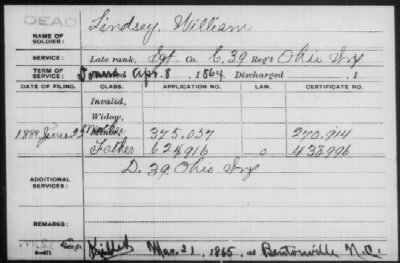 DEAD
Lindsey, William
NAME OF
SOLDIER:
SERVICE:
Late rank, Sgt. Co. C, 39 Reg't Ohio Inf
TERM OF
SERVICE:
Apr. 8, 1864 Discharged , 1
DATE OF FILING.
CLASS.
APPLICATION NO.
LAW.
CERTIFICATE NO.
Invalid,
Widow,
1888 June 22 Mother, 375.057 270.914
Father 624,916 o 438,996
D. 39 Ohio Inf
ADDITIONAL
SERVICES:
REMARKS:
Killed Mar. 21, 1865, at Bentonville N.C.